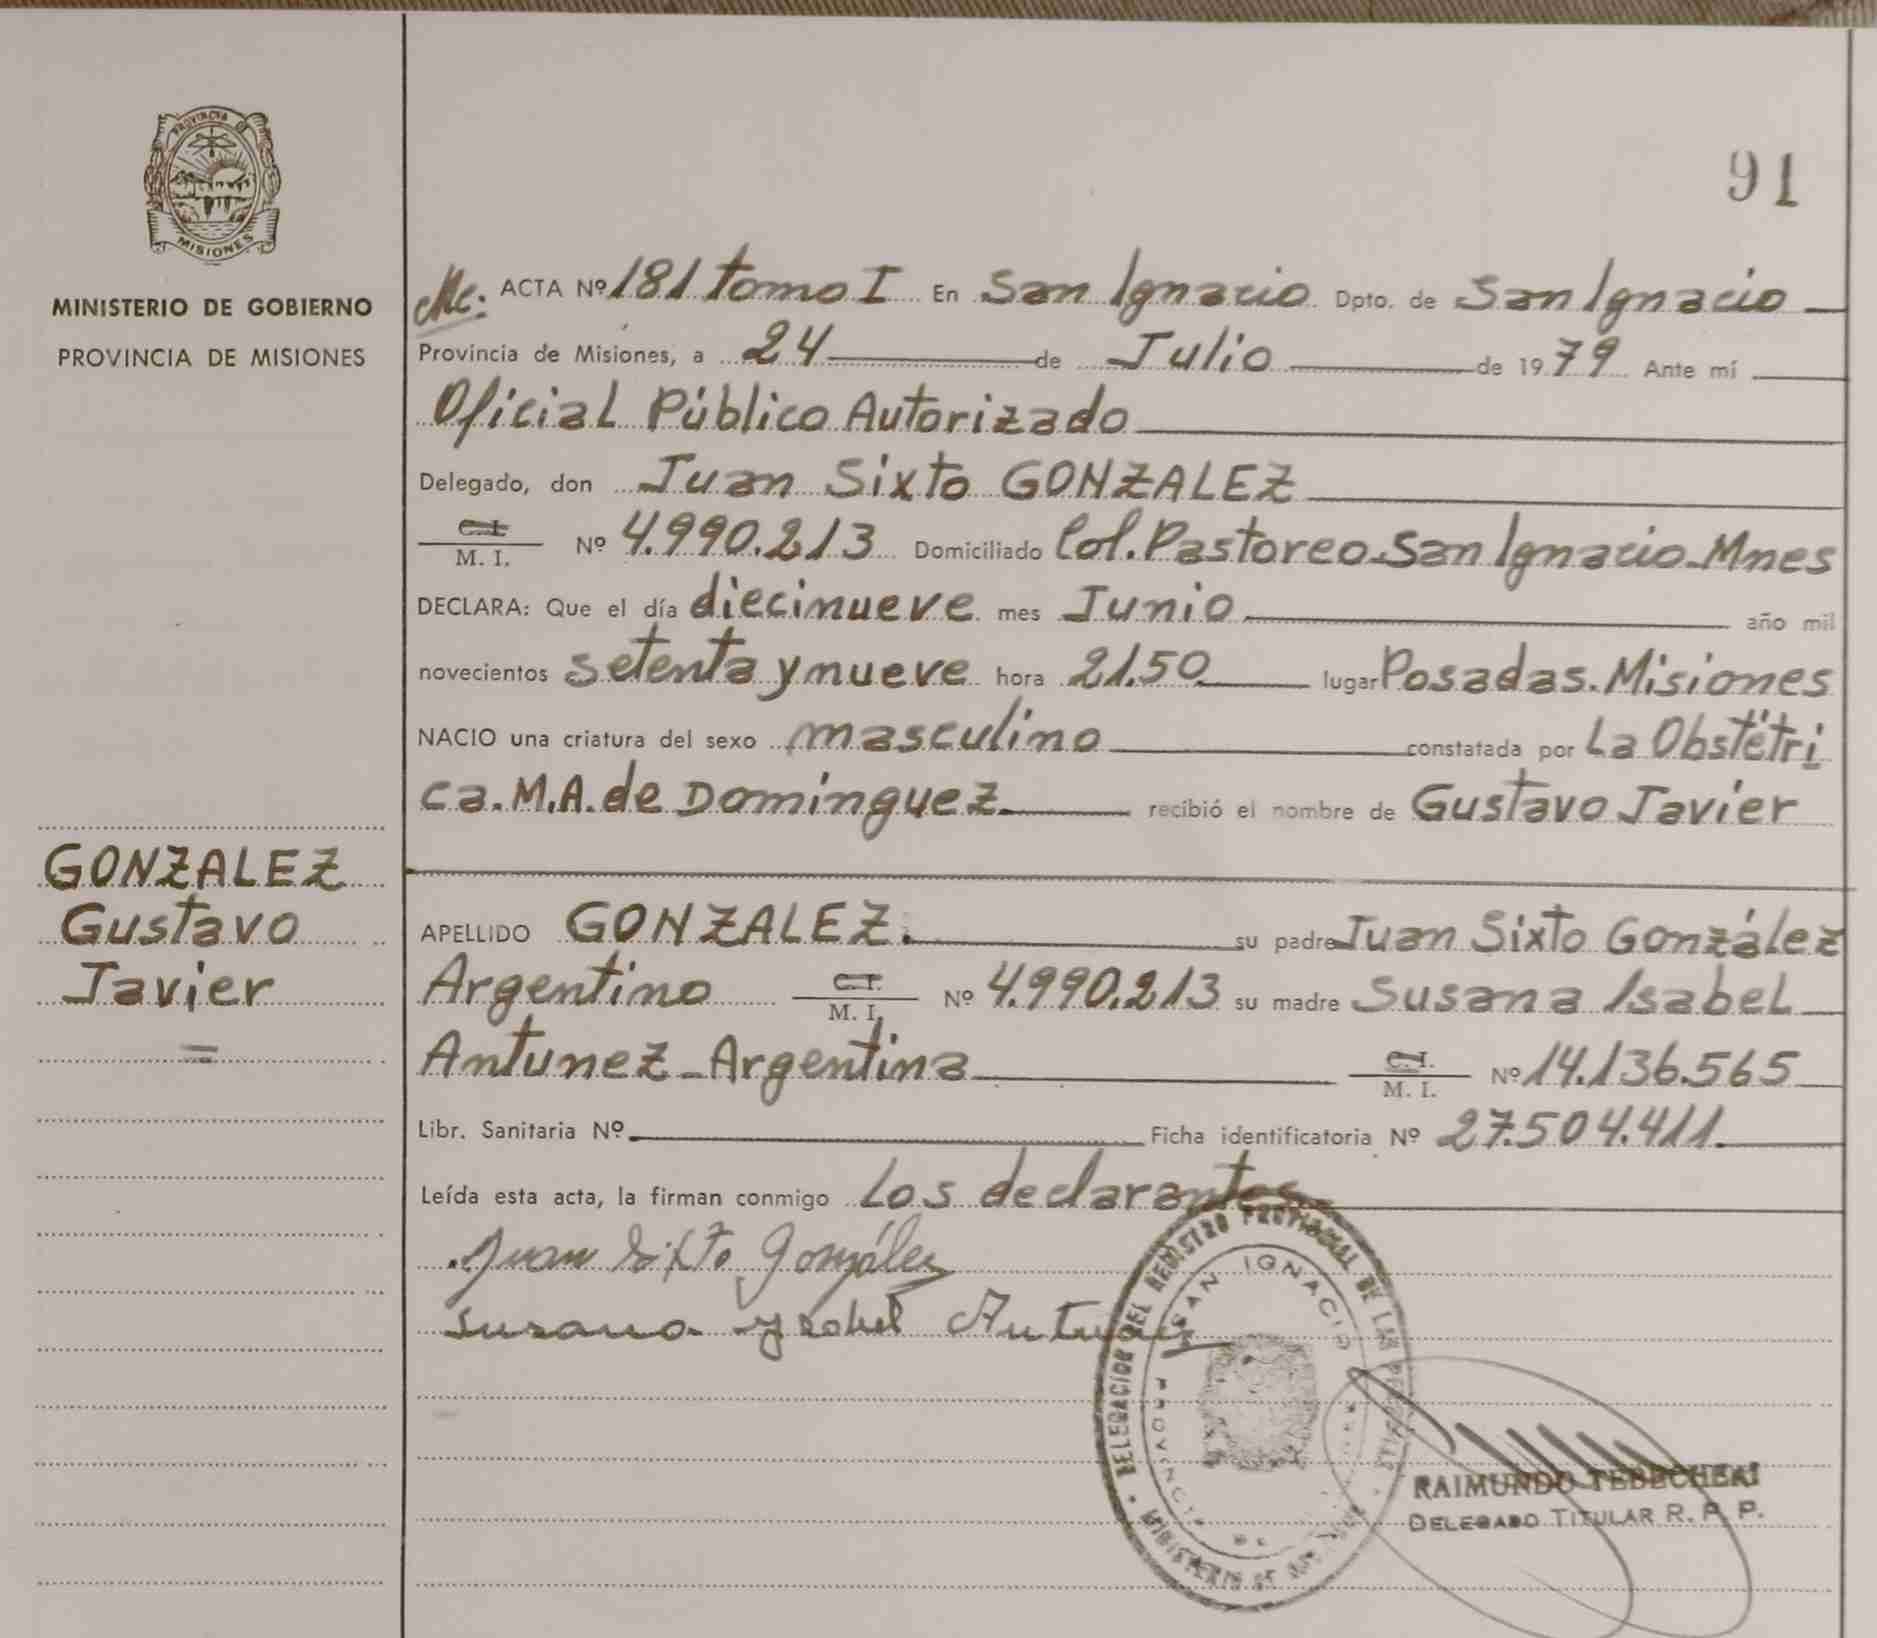 91
PROVINCIA DE
MISIONES
MINISTERIO DE GOBIERNO
PROVINCIA DE MISIONES
GONZALEZ
Gustavo
Javier
=
ACTA Nº 181 tomo I En San Ignacio Dpto. de San Ignacio
Provincia de Misiones, a 24 de Julio de 1979 Ante mí
Oficial Público Autorizado
Delegado, don Juan Sixto GONZALEZ
C.I. / M. I. Nº 4.990.213 Domiciliado Col. Pastoreo-San Ignacio-Mnes
DECLARA: Que el día diecinueve mes Junio año mil
novecientos setenta y nueve hora 21.50 lugar Posadas. Misiones
NACIO una criatura del sexo masculino constatada por La Obstétri
ca. M.A. de Domínguez recibió el nombre de Gustavo Javier
APELLIDO GONZALEZ. su padre Juan Sixto González
Argentino C.I. / M. I. Nº 4.990.213 su madre Susana Isabel
Antunez-Argentina C.I. / M. I. Nº 14.136.565
Libr. Sanitaria Nº Ficha identificatoria Nº 27.504.411.
Leída esta acta, la firman conmigo Los declarantes
Juan Sixto González
Susana Ysabel Antunez
DELEGACION DEL REGISTRO PROVINCIAL DE LAS PERSONAS
SAN IGNACIO
PROVINCIA DE
MINISTERIO DE
RAIMUNDO
DELEGADO TITULAR R. P. P.